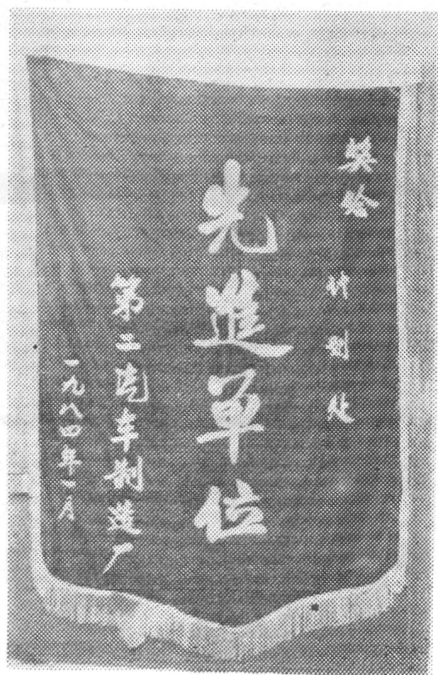 奖给 计划处
先進单位
第二汽车制造厂
一九八四年一月